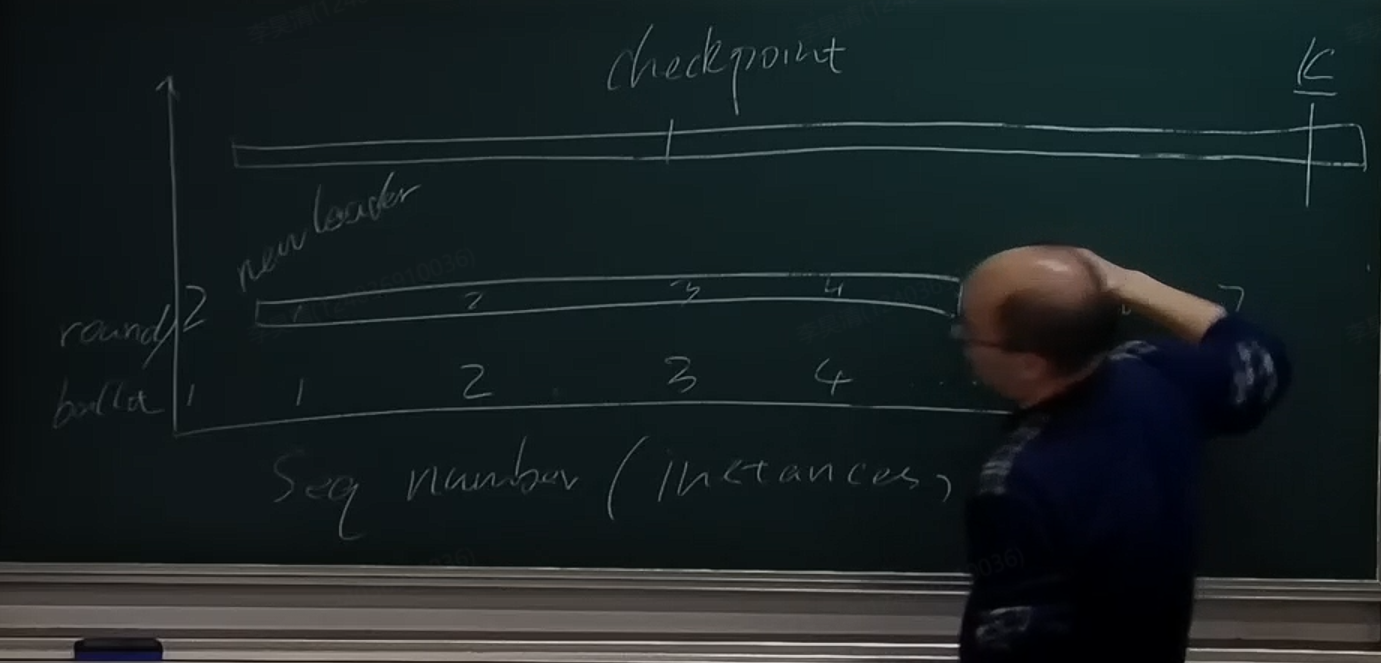 checkpoint
K
new leader
2 1 2 3 4 7
round/
ballot 1 1 2 3 4 ...
Seq number (instances)